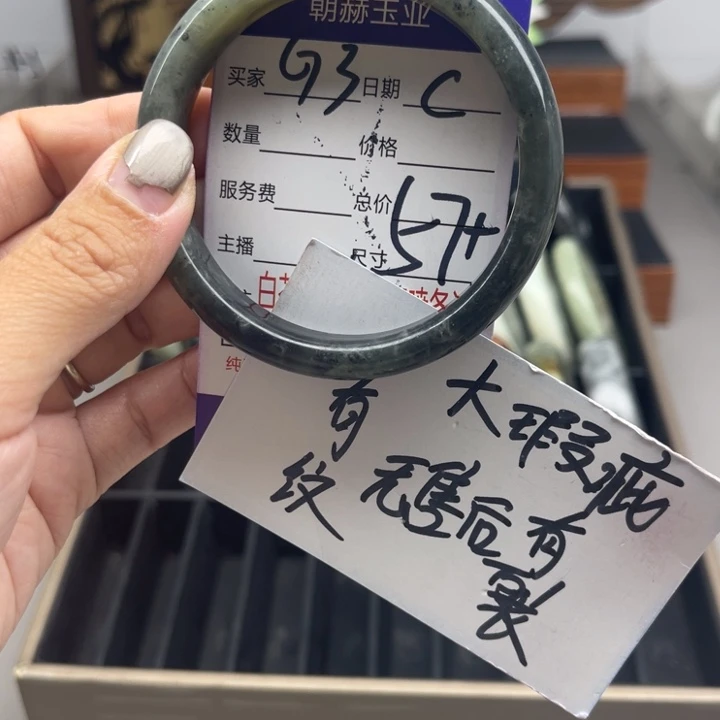 朝赫玉业
买家 93 日期 C
数量 价格
服务费 总价
主播 尺寸 57+
大瑕疵
有纹
无售后有裂